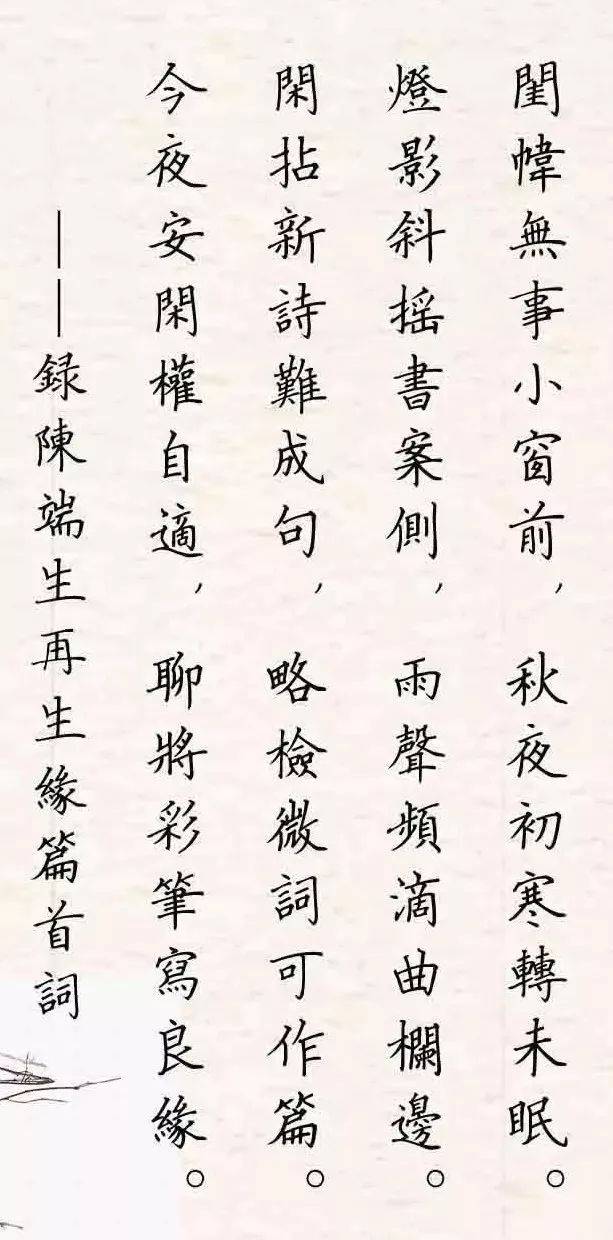 閨幃無事小窗前，秋夜初寒轉未眠。
燈影斜摇書案側，雨聲頻滴曲欄邊。
閑拈新詩難成句，略檢微詞可作篇。
今夜安閑權自適，聊將彩筆寫良緣。
——録陳端生再生緣篇首詞